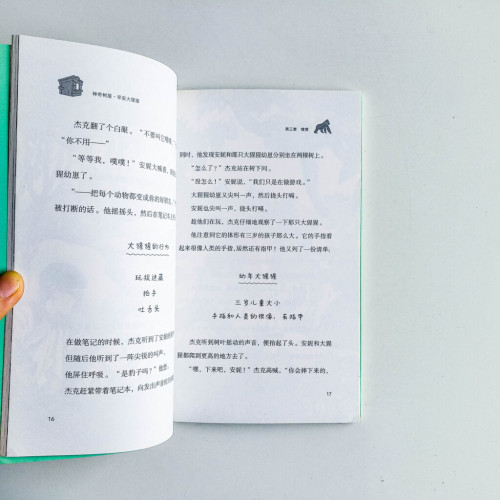 神奇树屋·平安大猩猩
杰克翻了个白眼。“不要叫它噗噗
“你不用——”
“等等我,噗噗!”安妮大喊着
猩幼崽
“——把每个动物都变成你的好朋友
被打断的话。他摇摇头,然后在笔记本
大猩猩的行为
玩捉迷藏
拍手
吐舌头
在做笔记的时候,杰克听到了安妮的
但随后他听到了一阵尖锐的叫声。
他屏住呼吸。“是豹子吗?”他想。
杰克赶紧带着笔记本,向发出声音的
16
第三章 噗噗
同时,他发现安妮和那只大猩猩幼崽分别坐在两棵树上。
“怎么了?”杰克站在树下问。
“没怎么!”安妮说,“我们只是在做游戏。”
大猩猩幼崽又尖叫一声,然后挠头打嗝。
安妮也尖叫一声,挠头打嗝。
趁他们在玩,杰克仔细地观察了一下那只大猩猩。
他注意到它的体形有三岁的孩子那么大。它的手指看
起来很像人类的手指,居然还有指甲!他又列了一份清单:
幼年大猩猩
三岁儿童大小
手指和人类的很像,有指甲
杰克听到树叶摇动的声音,便抬起了头。安妮和大猩
猩都爬到更高的地方去了。
“嘿,下来吧,安妮!”杰克高喊,“你会摔下来的,
17